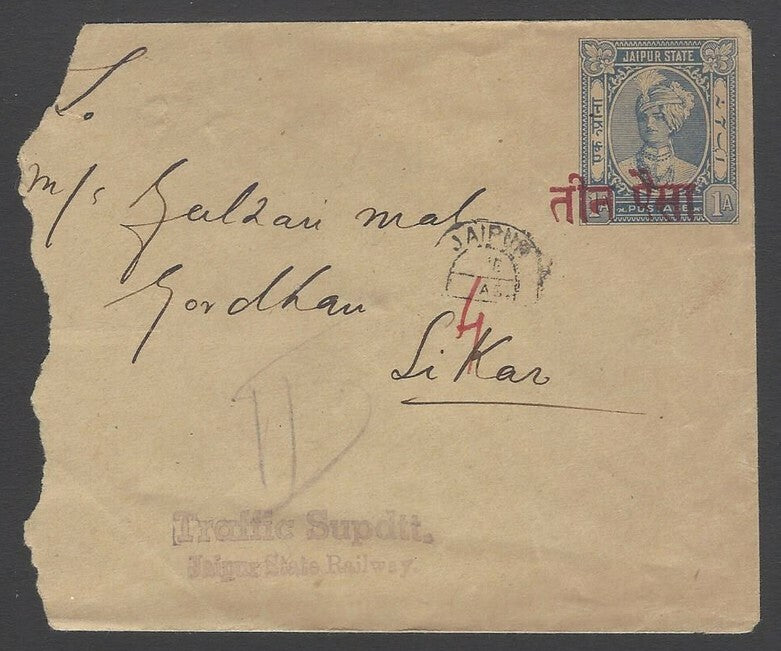 JAIPUR STATE
एक आना
POSTAGE
1A
तीन पैसा
JAIPUR
To
M/s Gulzari mal
Gordhan
4
Sikar
Traffic Supdtt.
Jaipur State Railway.